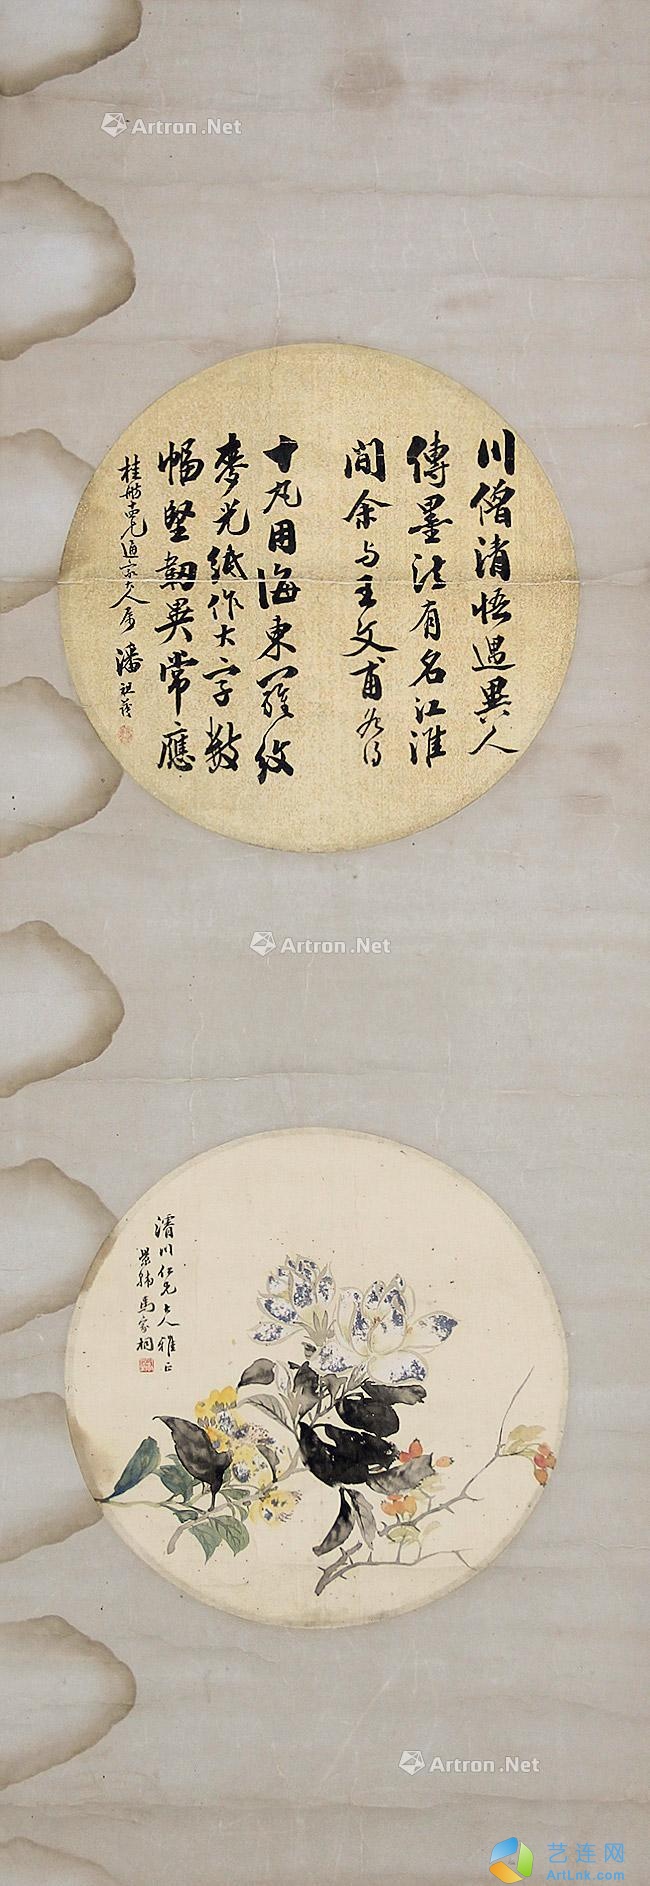 Artron.Net
川僧清悟遇異人
傳墨法有名江淮
間余与王文甫各得
十丸用海東羅紋
麥光紙作大字數
幅堅韌異常應
桂舫尚兄通家大人屬
潘祖蔭
Artron.Net
濬川仁兄大人雅正
景韩馬家桐
Artron.Net
艺连网
ArtLnk.com